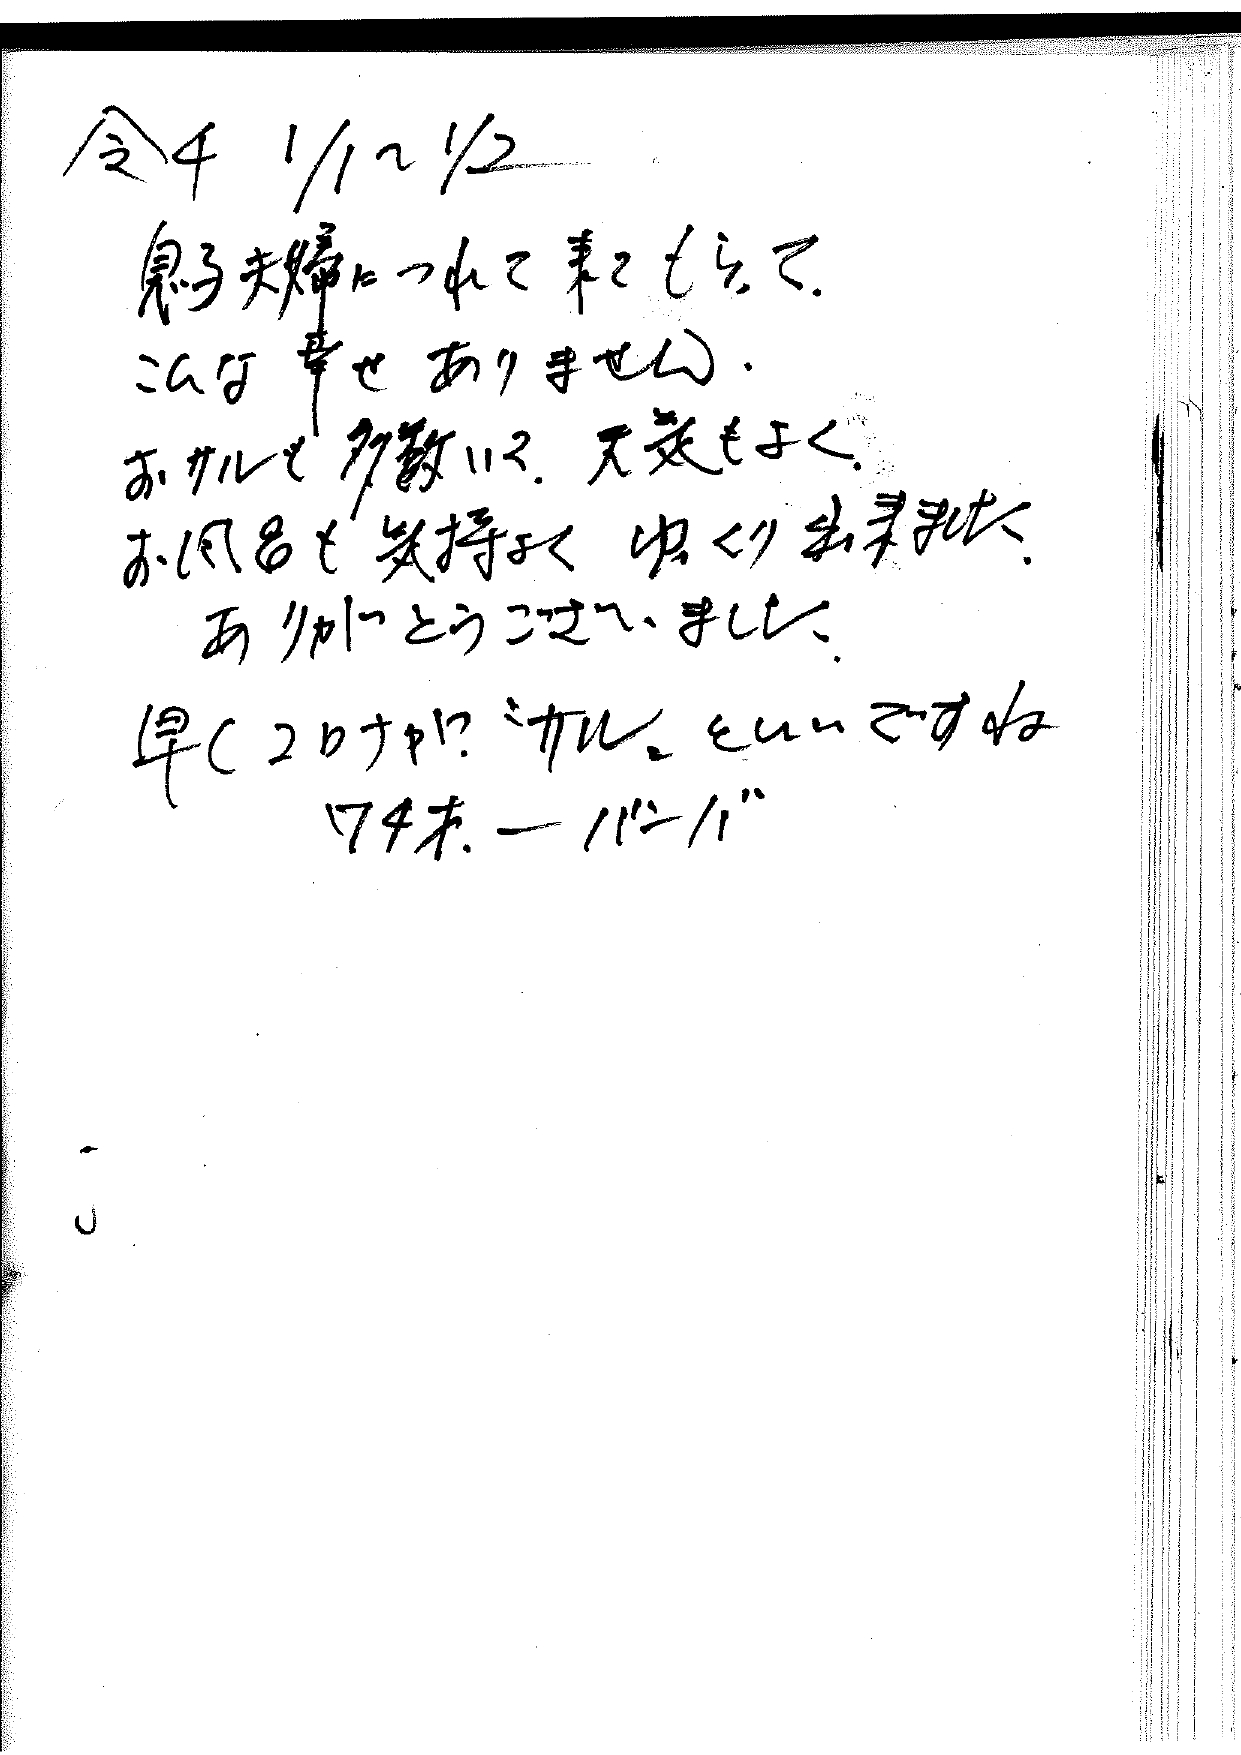 令4 1/1~1/2
息子夫婦につれて来てもらって.
こんな幸せありません.
おサルも多数いて.天気もよく.
お風呂も気持よくゆっくり出来ました.
ありがとうございました.
早くコロナが"サル"といいですね
74才.ーバーバ